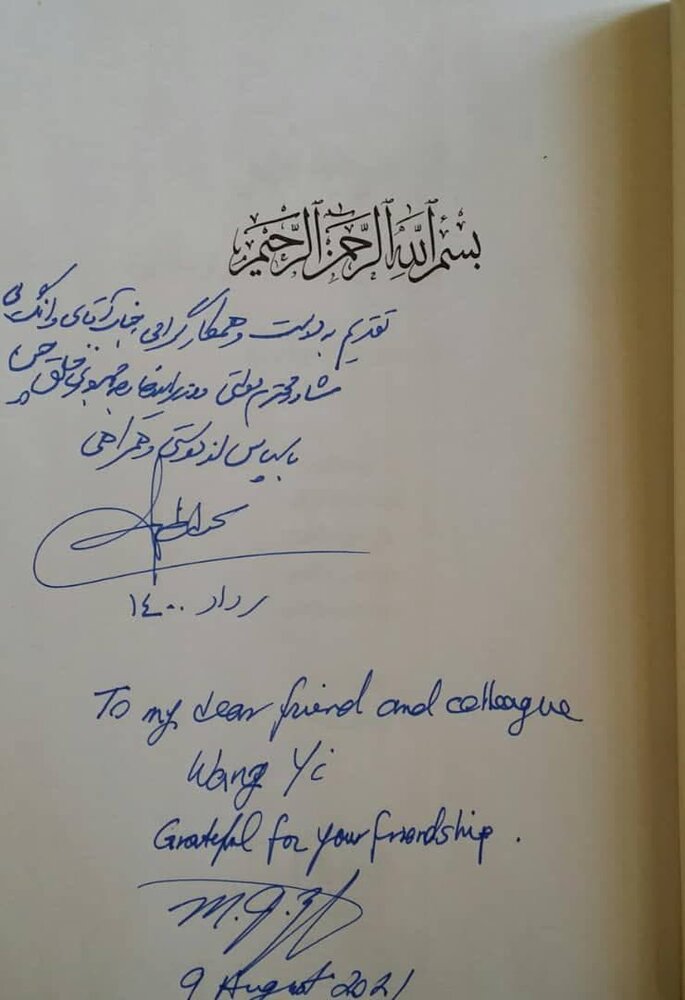 بسم الله الرحمن الرحیم
تقدیم به دوست و همکار گرامی جناب آقای وانگ یی
مشاور محترم دولتی و وزیر امور خارجه جمهوری خلق چین
با سپاس از دوستی و همراهی
مرداد ۱٤۰۰
To my dear friend and colleague
Wang Yi
Grateful for your friendship.
M. J. Z
9 August 2021